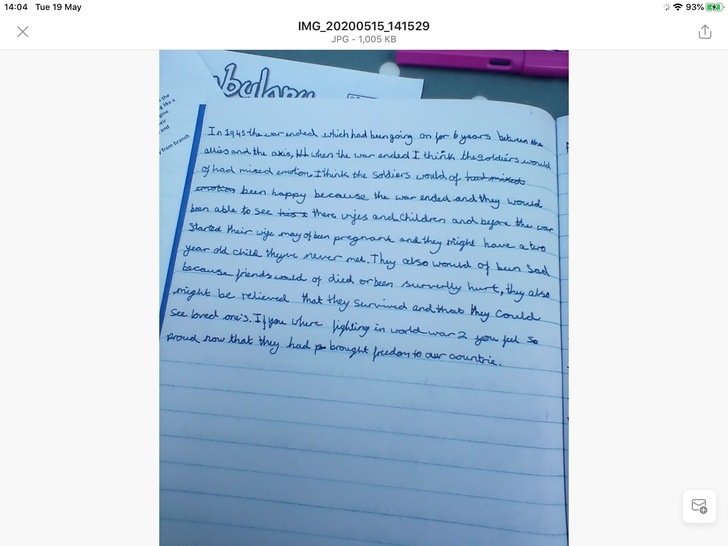 14:04 Tue 19 May
93%
IMG_20200515_141529
JPG - 1,005 KB
vbulary
the
ng like a
gine
eir
and
from branch
In 1945 the war ended which had been going on for 6 years between the
allies and the axis, when the war ended I think the soldiers would
of had mixed emotion. I think the soldiers would of had mixed
emotion been happy because the war ended and they would
ben able to see his s there wifes and children and before the war
started their wife may of been pregnant and they might have a two
year old child theyve never met. They also would of been sad
because friends would of died or been surverly hurt, they also
might be relieved that they survived and that they could
see loved one's. If you where fighting in world war 2 you feel so
proud now that they had brought freedom to our countrie.